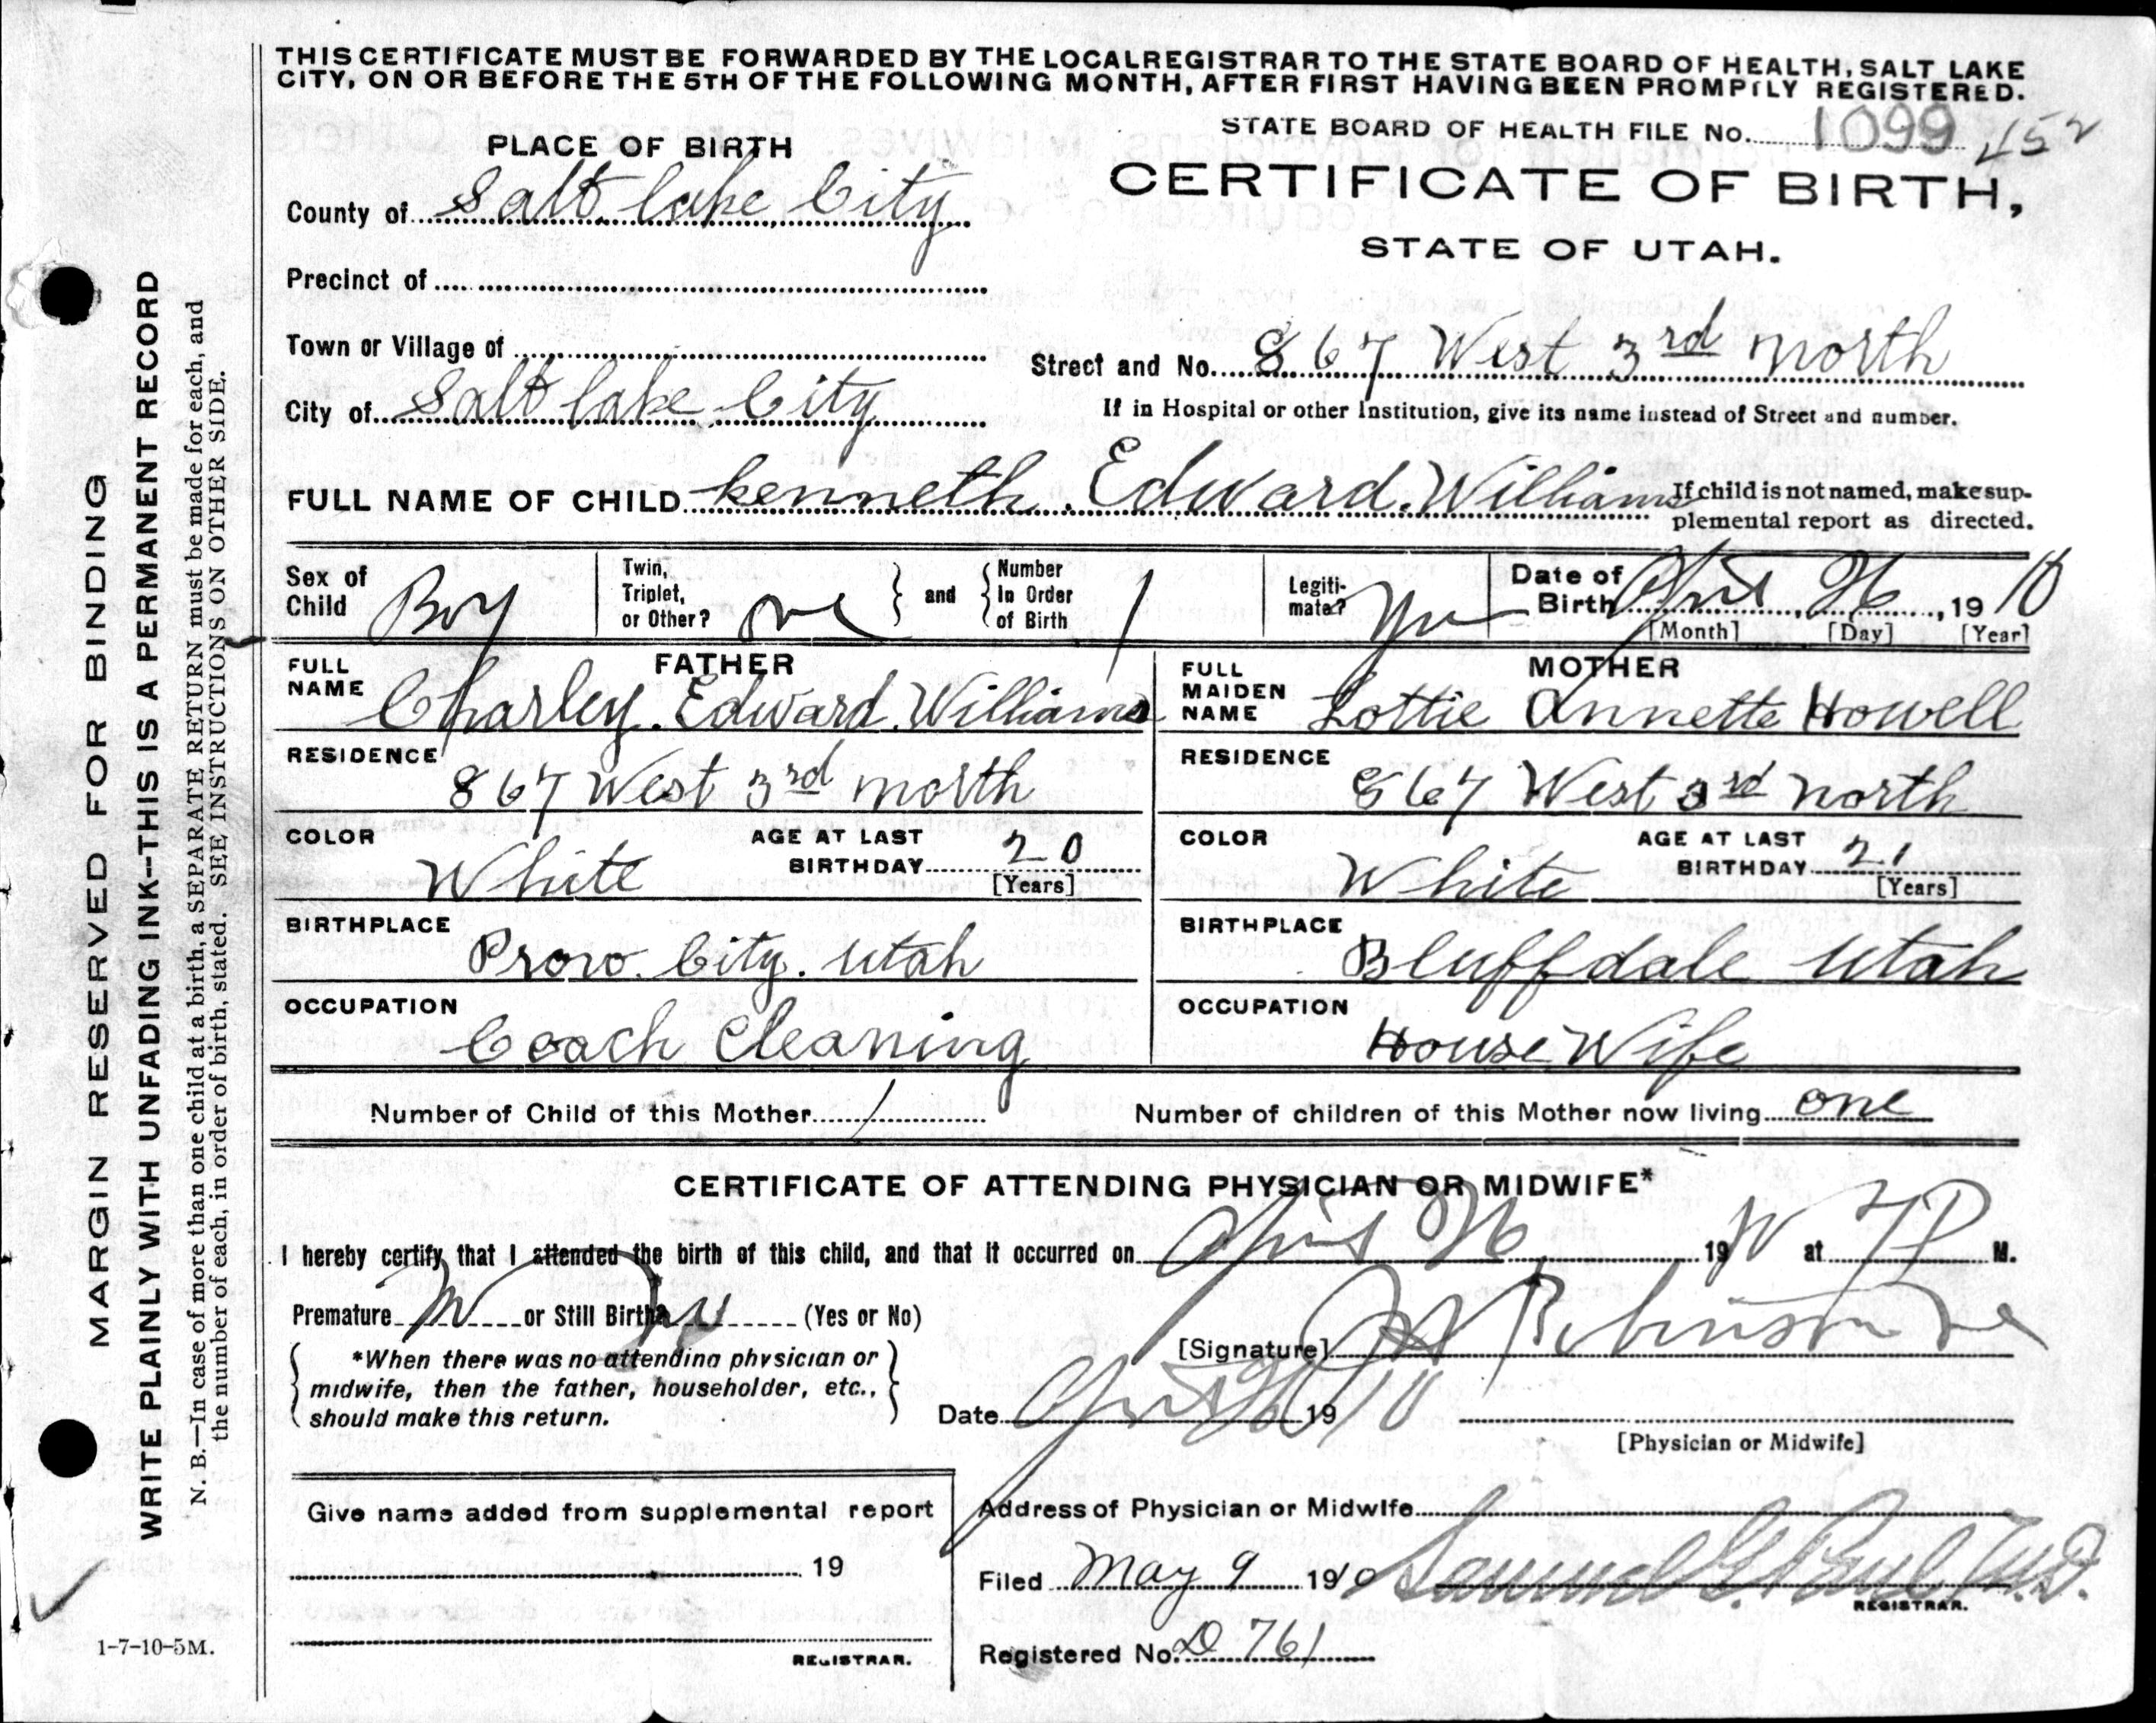 THIS CERTIFICATE MUST BE FORWARDED BY THE LOCAL REGISTRAR TO THE STATE BOARD OF HEALTH, SALT LAKE
CITY, ON OR BEFORE THE 5TH OF THE FOLLOWING MONTH, AFTER FIRST HAVING BEEN PROMPTLY REGISTERED.
STATE BOARD OF HEALTH FILE No. 1099 452
PLACE OF BIRTH
CERTIFICATE OF BIRTH,
STATE OF UTAH.
County of Salt lake City
Precinct of
Town or Village of
Street and No. 867 West 3rd north
City of Salt lake City
If in Hospital or other Institution, give its name instead of Street and number.
FULL NAME OF CHILD kenneth. Edward. Williams
If child is not named, make sup-
plemental report as directed.
Sex of Child Boy
Twin, Triplet, or Other? one and Number In Order of Birth 1
Legiti-mate? Yes
Date of Birth April 26, 1910
[Month] [Day] [Year]
FATHER
FULL NAME Charley. Edward. Williams
MOTHER
FULL MAIDEN NAME Lottie Annette Howell
RESIDENCE 867 West 3rd north
RESIDENCE 867 West 3rd north
COLOR White AGE AT LAST BIRTHDAY 20 [Years]
COLOR White AGE AT LAST BIRTHDAY 21 [Years]
BIRTHPLACE Provo. City. Utah
BIRTHPLACE Bluffdale Utah
OCCUPATION Coach Cleaning
OCCUPATION House Wife
Number of Child of this Mother 1
Number of children of this Mother now living one
CERTIFICATE OF ATTENDING PHYSICIAN OR MIDWIFE*
I hereby certify that I attended the birth of this child, and that it occurred on April 26 1910 at 7 P M.
Premature No or Still Birth? No (Yes or No)
*When there was no attending physician or
midwife, then the father, householder, etc.,
should make this return.
[Signature] Robinson
Date April 26 1910
[Physician or Midwife]
Give name added from supplemental report
19
REGISTRAR.
Address of Physician or Midwife
Filed May 9 1910 Samuel G. Paul M.D.
REGISTRAR.
Registered No. D 761
MARGIN RESERVED FOR BINDING
WRITE PLAINLY WITH UNFADING INK--THIS IS A PERMANENT RECORD
N. B.—In case of more than one child at a birth, a SEPARATE RETURN must be made for each, and
the number of each, in order of birth, stated. SEE INSTRUCTIONS ON OTHER SIDE.
1-7-10-5M.